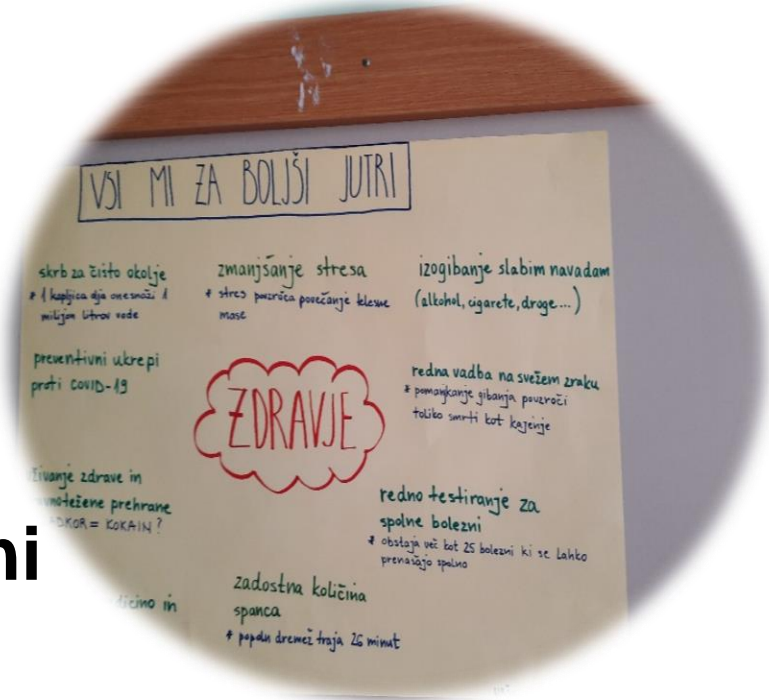 VSI MI ZA BOLJŠI JUTRI
skrb za čisto okolje
* 1 kapljica olja onesnaži 1
milijon litrov vode
zmanjšanje stresa
* stres povzroča povečanje telesne
mase
izogibanje slabim navadam
(alkohol, cigarete, droge...)
preventivni ukrepi
proti COVID-19
ZDRAVJE
redna vadba na svežem zraku
* pomanjkanje gibanja povzroči
toliko smrti kot kajenje
zdrave in
prehrane
= KOKAIN?
redno testiranje za
spolne bolezni
* obstaja več kot 25 bolezni ki se lahko
prenašajo spolno
zadostna količina
spanca
* popoln dremež traja 26 minut
in
ni